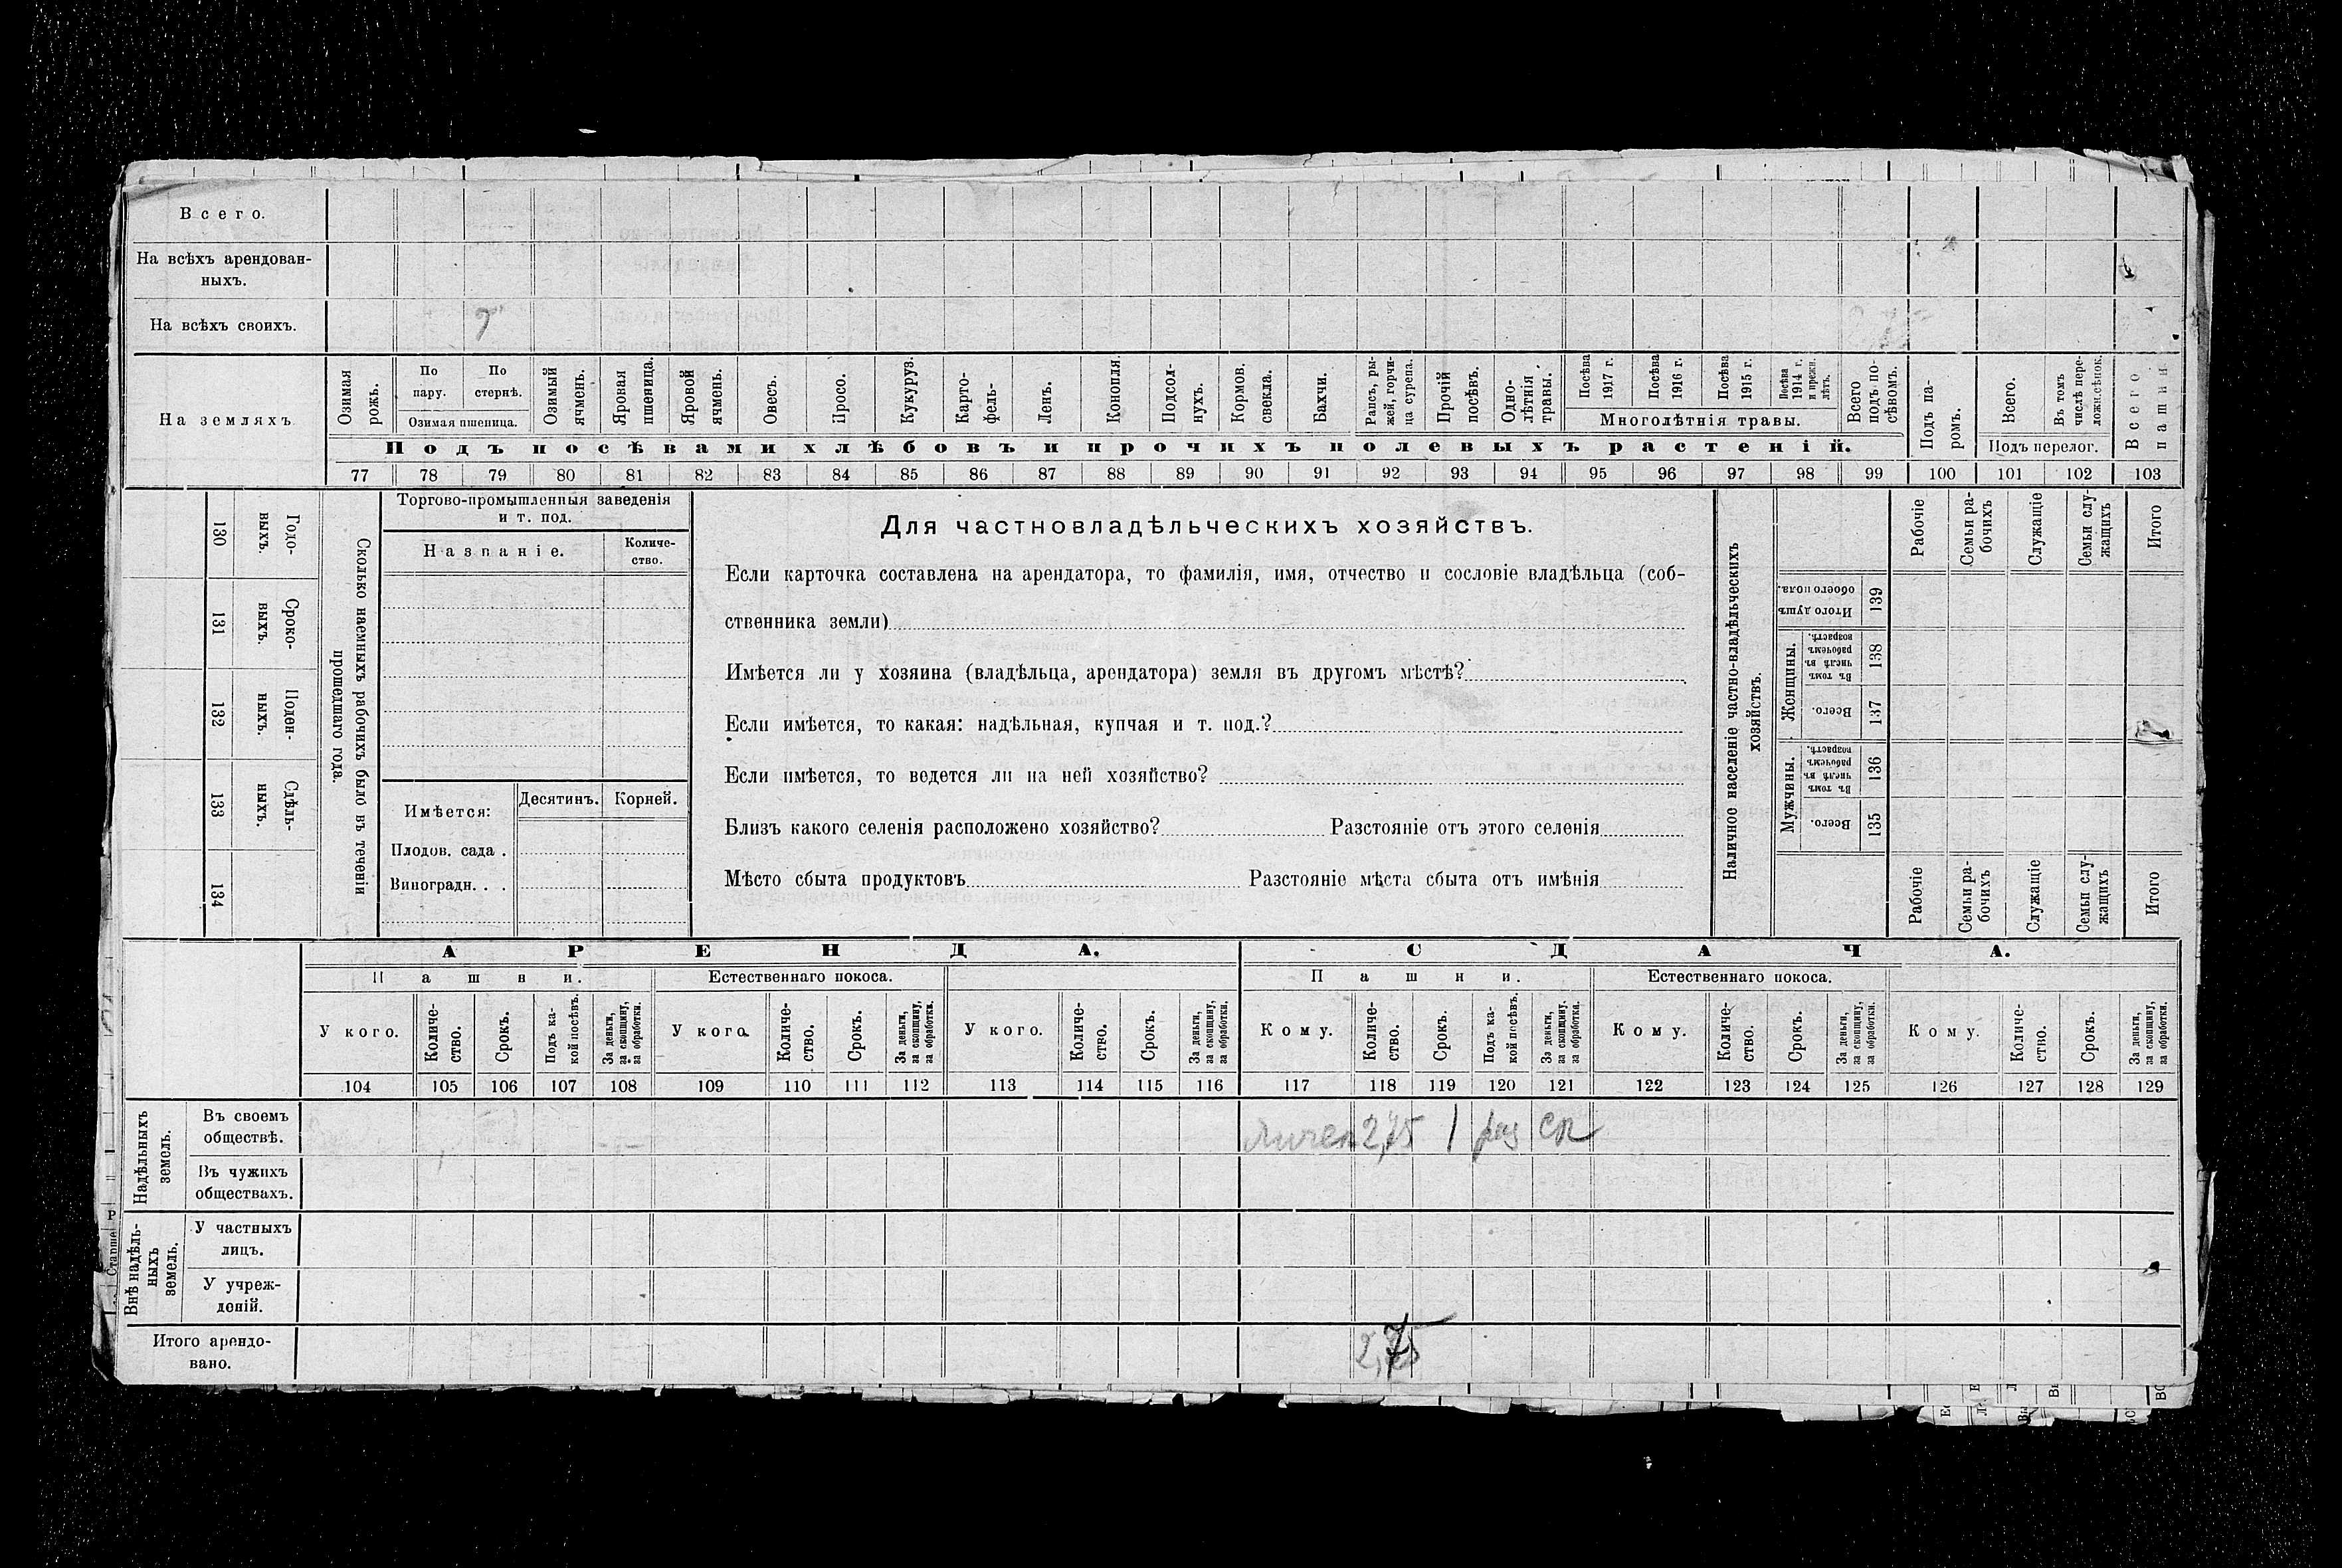 Всего.
На всѣхъ арендован-
ныхъ.
На всѣхъ своихъ.
На земляхъ
Озимая рожь.
По пару.
По стернѣ.
Озимая пшеница.
Озимый ячмень.
Яровая пшеница.
Яровой ячмень.
Овесъ.
Просо.
Кукуруз.
Карто-
фель-
Ленъ.
Конопля.
Подсол-
нухъ.
Кормов. свекла.
Бахчи.
Рапсъ, ры-
жей, горчи-
ца сурепа.
Прочій посѣвъ.
Одно-
лѣтнія травы.
Посѣва 1917 г.
Посѣва 1916 г.
Посѣва 1915 г.
Посѣва 1914 г. и прежн. лѣтъ.
Многолѣтнія травы.
Всего подъ по-
сѣвомъ.
Подъ па-
ромъ.
Всего.
Въ томъ числѣ пере-
ложн. сѣнок.
Подъ перелог.
Всего пашни
Подъ посѣвами хлѣбовъ и прочихъ полевыхъ растеній.
77 78 79 80 81 82 83 84 85 86 87 88 89 90 91 92 93 94 95 96 97 98 99 100 101 102 103
130 Годо-
выхъ.
131 Сроко-
выхъ.
132 Поден-
ныхъ.
133 Сдѣль-
ныхъ.
134
Сколько наемныхъ рабочихъ было въ теченіи
прошедшаго года.
Торгово-промышленныя заведенія
и т. под.
Названіе.
Количе-
ство.
Имѣется:
Десятинъ.
Корней.
Плодов. сада .
Виноградн. . .
Для частновладѣльческихъ хозяйствъ.
Если карточка составлена на арендатора, то фамилія, имя, отчество и сословіе владѣльца (соб-
ственника земли)
Имѣется ли у хозяина (владѣльца, арендатора) земля въ другомъ мѣстѣ?
Если имѣется, то какая: надѣльная, купчая и т. под.?
Если имѣется, то ведется ли на ней хозяйство?
Близъ какого селенія расположено хозяйство? Разстояніе отъ этого селенія
Мѣсто сбыта продуктовъ Разстояніе мѣста сбыта отъ имѣнія
Наличное населеніе частно-владѣльческихъ
хозяйствъ.
Рабочіе
Семьи ра-
бочихъ
Служащіе
Семьи слу-
жащихъ
Итого
Итого душъ обоего пола. 139
Женщины.
Въ томъ числѣ въ рабочемъ возрастѣ. 138
Всего. 137
Мужчины.
Въ томъ числѣ въ рабочемъ возрастѣ. 136
Всего. 135
Рабочіе
Семьи ра-
бочихъ
Служащіе
Семьи слу-
жащихъ
Итого
АРЕНДА. СДАЧА.
Пашни. Естественнаго покоса. Пашни. Естественнаго покоса.
У кого. Количе-
ство. Срокъ. Подъ ка-
кой посѣвъ. За деньги, за скопщину, за обработки.
У кого. Количе-
ство. Срокъ. За деньги, за скопщину, за обработки.
У кого. Количе-
ство. Срокъ. За деньги, за скопщину, за обработки.
Кому. Количе-
ство. Срокъ. Подъ ка-
кой посѣвъ. За деньги, за скопщину, за обработки.
Кому. Количе-
ство. Срокъ. За деньги, за скопщину, за обработки.
Кому. Количе-
ство. Срокъ. За деньги, за скопщину, за обработки.
104 105 106 107 108 109 110 111 112 113 114 115 116 117 118 119 120 121 122 123 124 125 126 127 128 129
Надѣльныхъ
земель.
Въ своемъ
обществѣ.
2,75 1 ск
Въ чужихъ
обществахъ.
Внѣ надѣль-
ныхъ
земель.
У частныхъ
лицъ.
У учреж-
деній.
Итого арендо-
вано.
2,75